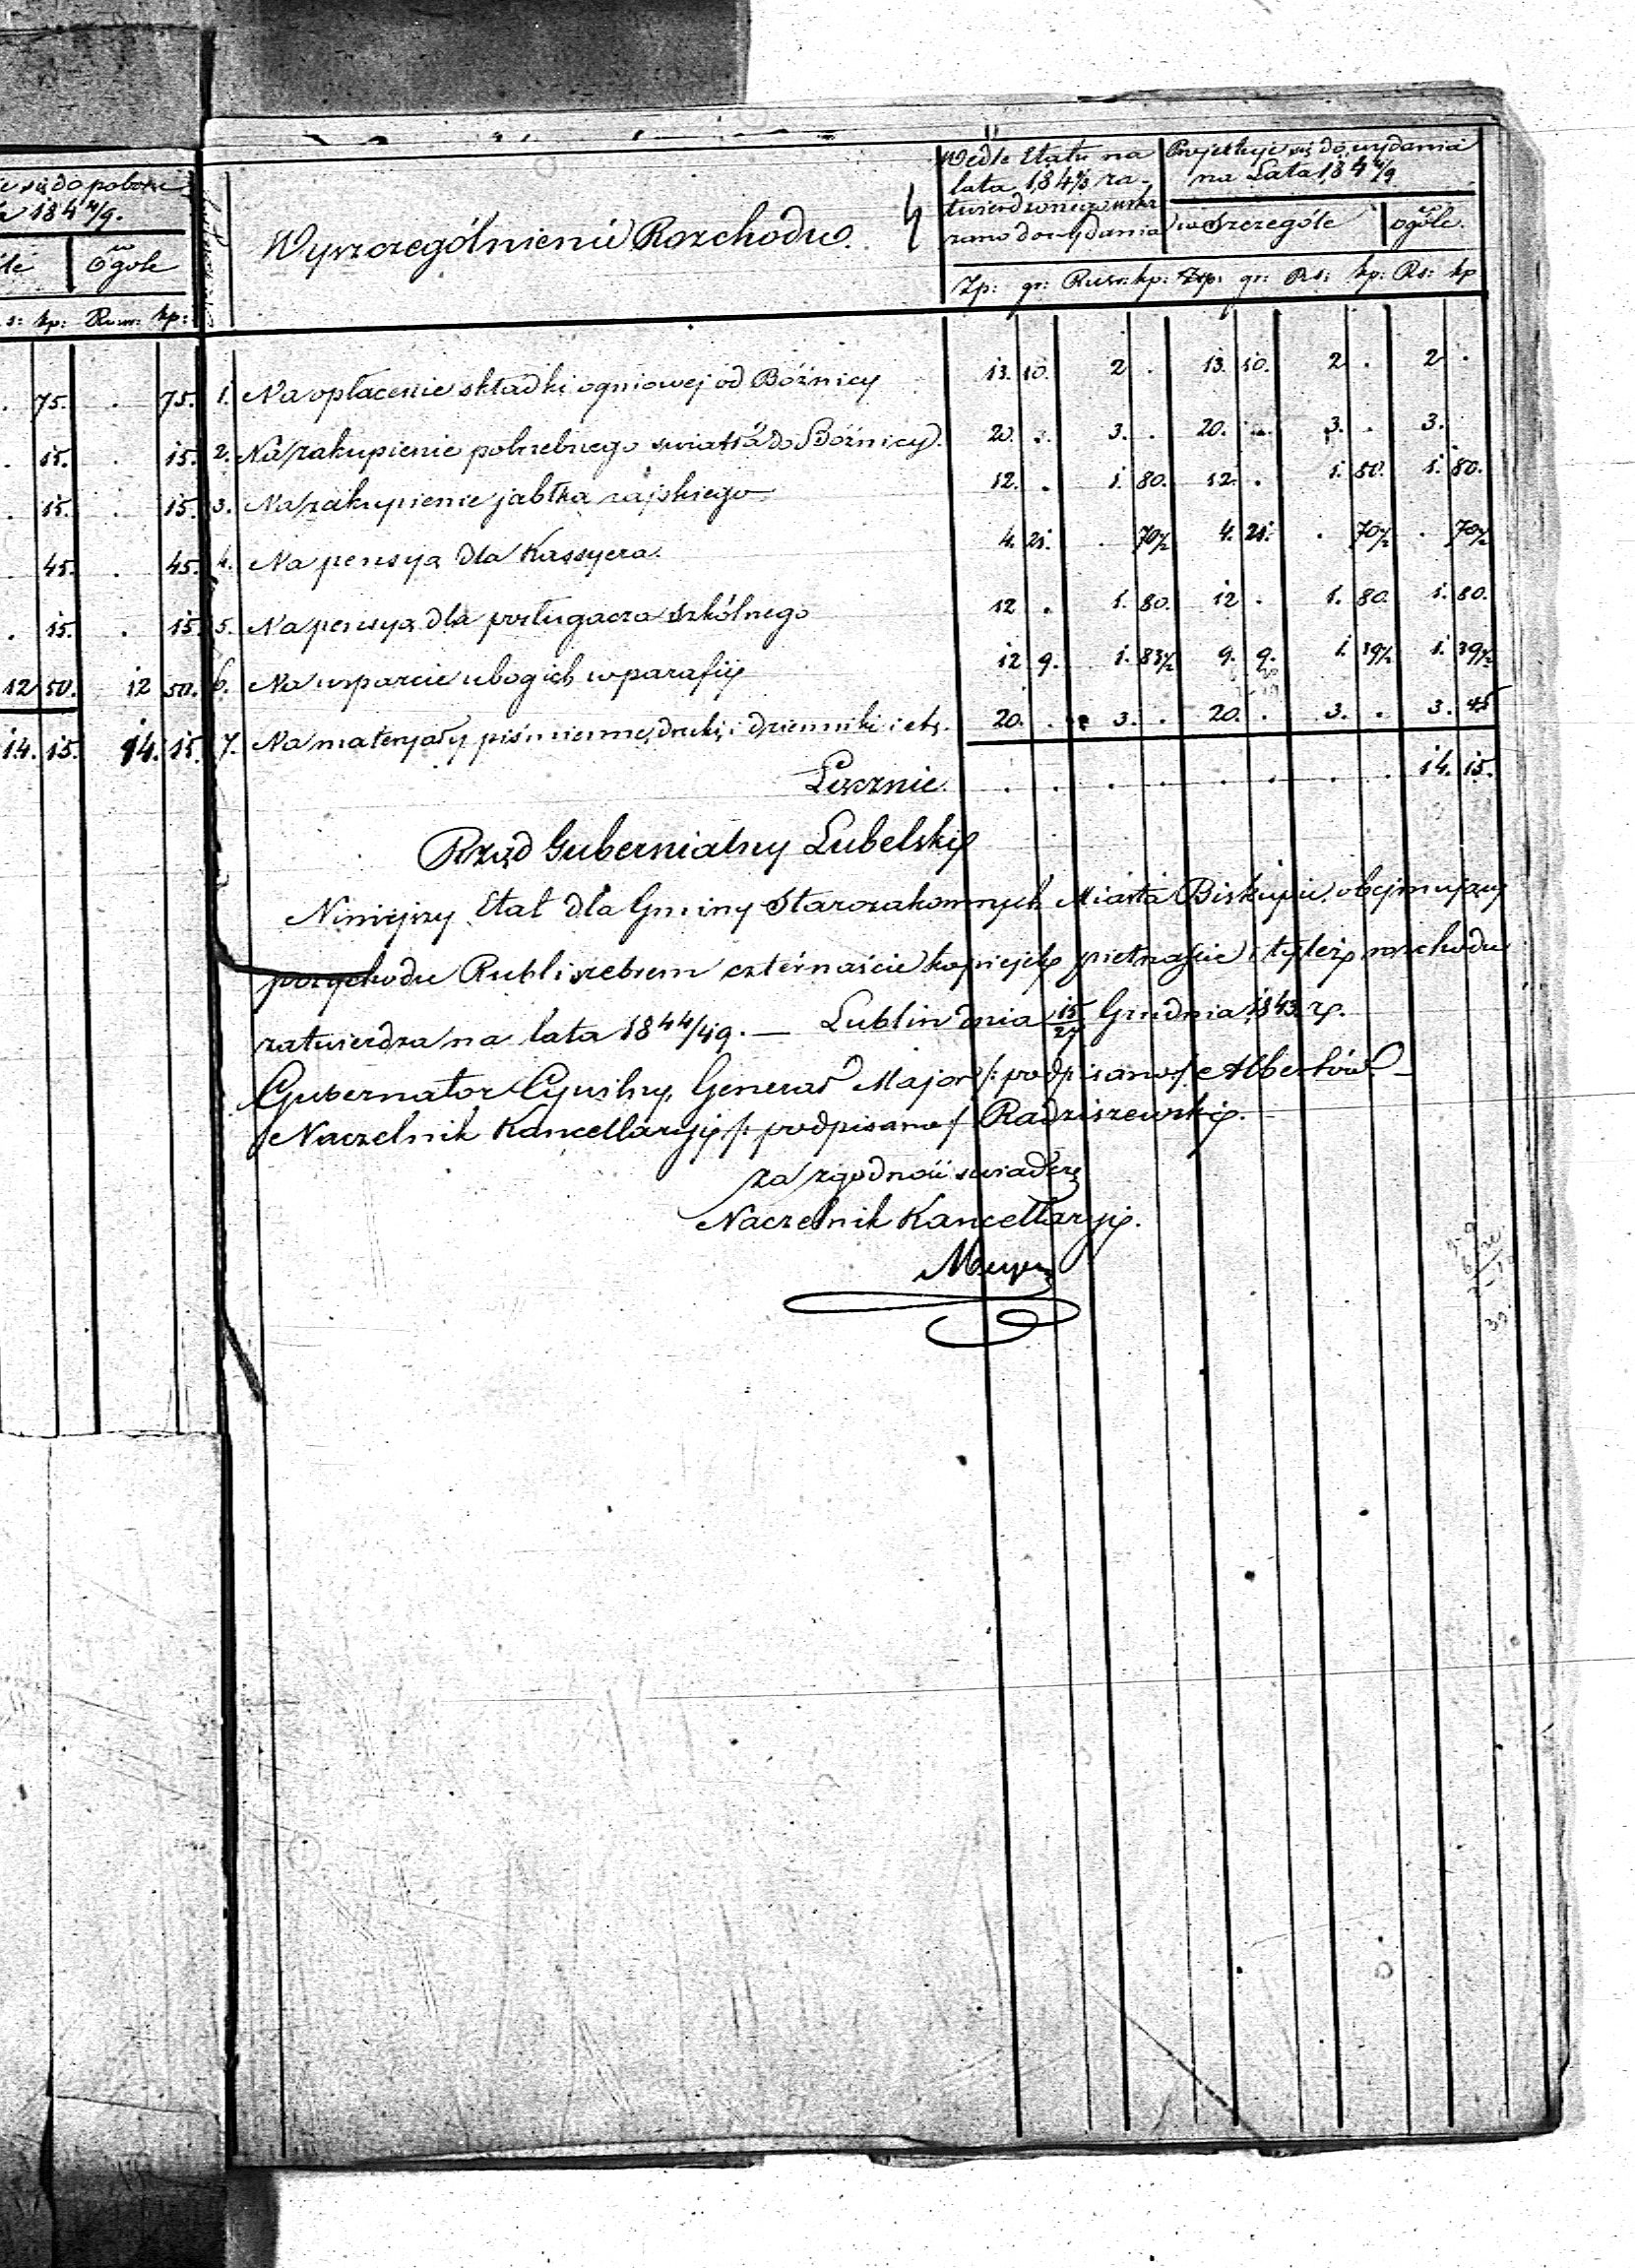 się do poboru
184 4/9.
Ogóle
s: kp: Rusr: kp:
. 75. . 75.
. 15. . 15.
. 15. . 15.
. 45. . 45.
. 15. . 15.
12 50. 12 50.
14. 15. 14. 15.
Wyszczególnienie Rozchodu.
Wedle Etatu na
lata 184 1/3 za-
twierdzonego
zano do wydania
Projektuje się do wydania
na Lata 184 4/9
w Szczególe
ogóle.
Zp: gr: Rusr: kp: Zp: gr: Rs: kp: Rs: kp
1. Na opłacenie składki ogniowej od Bóźnicy 13. 10. 2 . 13. 10. 2 . 2 .
2. Na zakupienie potrzebnego swiatła do Bóźnicy. 20. . 3. . 20. . 3. . 3.
3. Na zakupienie jabłka rajskiego 12. . 1. 80. 12. . 1. 80. 1. 80.
4. Na pensyą dla Kassyera. 4. 21. . 70½ 4. 21. . 70½ . 70½
5. Na pensyą dla posługacza szkólnego 12 . 1. 80. 12 . 1. 80. 1. 80.
6. Na wsparcie ubogich w parafij 12 9. 1. 83½ 9. 9. 1. 39½ 1. 39½
7. Na materyały piśmienne, druki, i dzienniki i etc. 20. . 3. . 20. . 3. . 3. 45
Łącznie . . . . . . . . 14. 15.
Rząd Gubernialny Lubelski
Niniejszy Etat dla Gminy Starozakonnych Miasta Biskupic obejmujący
przychodu Rubli srebrem czternaście kopiejek pietnaście i tyleż rozchodu
zatwierdza na lata 18 44/49. — Lublin dnia 15/27 Grudnia 1843 r.
Gubernator Cywilny, Generał Major /: podpisano / Albertów. —
Naczelnik Kancellaryi /: podpisano / Radziszewski.
za zgodność swiadczę
Naczelnik Kancellaryi.